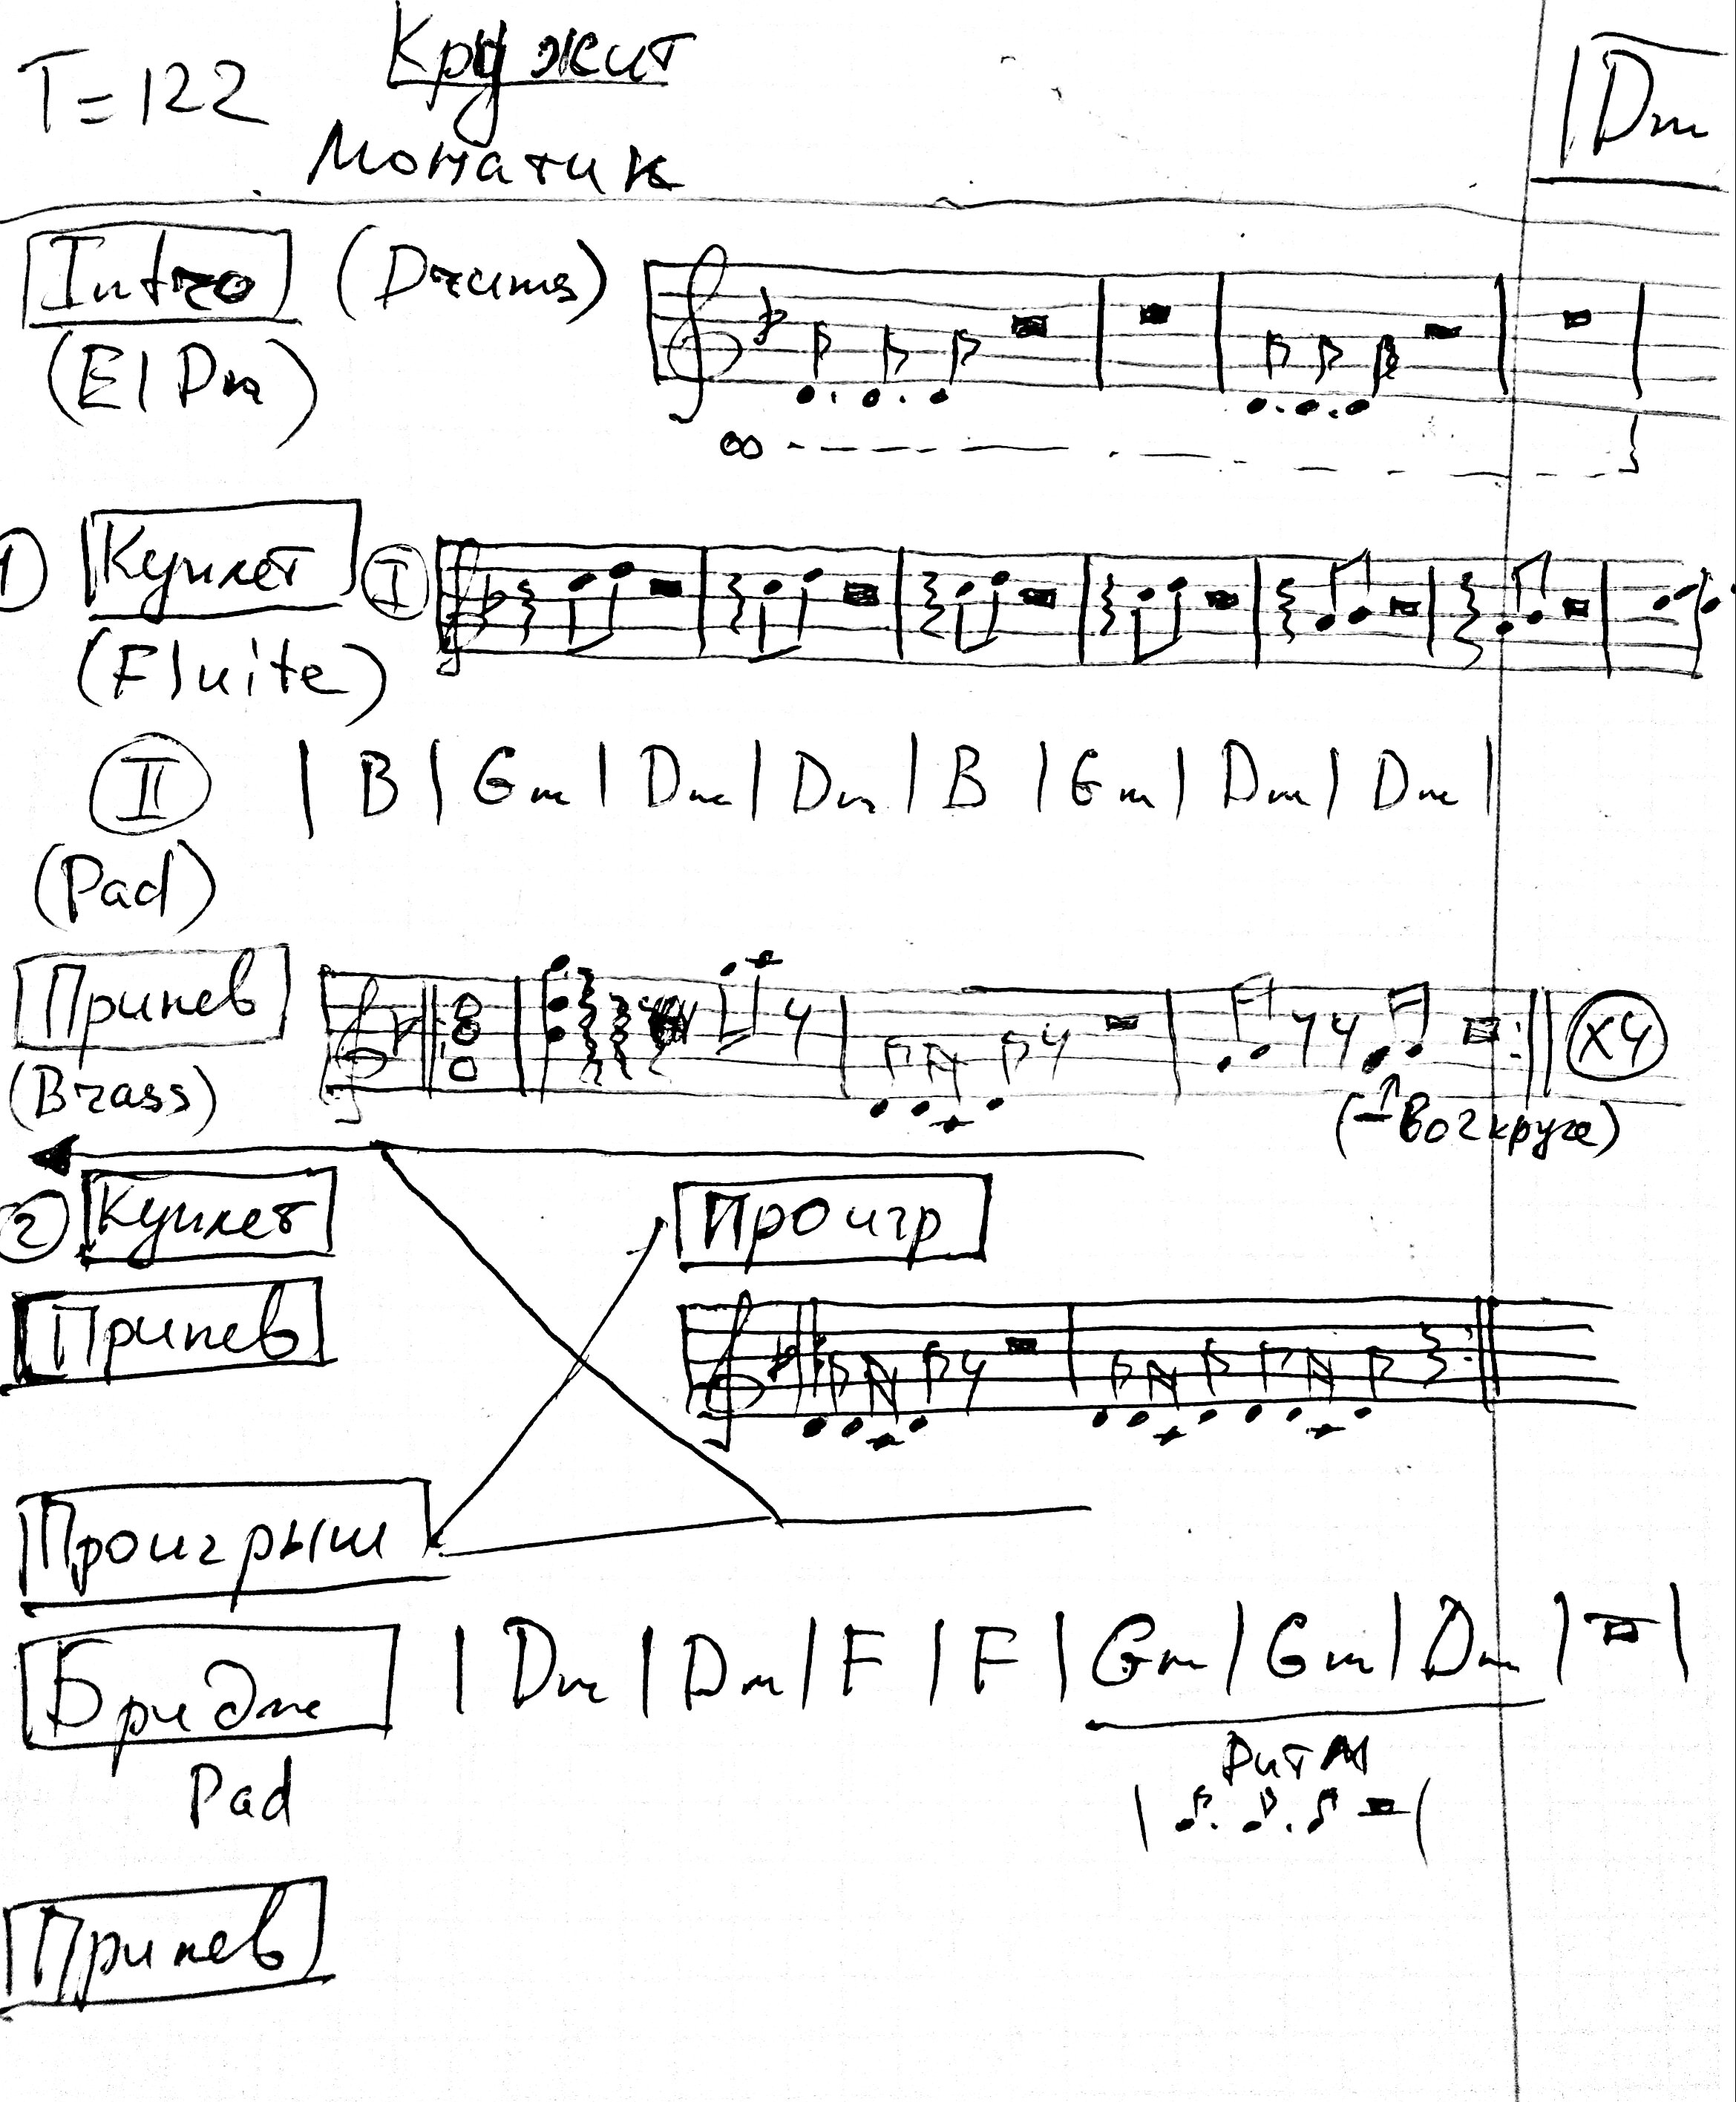 T=122 Кружит |Dm
Монатик
Intro (Drums)
(El Dm)
8
1 Куплет I
(Fluite)
II | B | Gm | Dm | Dm | B | Gm | Dm | Dm |
(Pad)
Припев x4
(Brass) (–Во 2 круге)
2 Куплет Проигр
Припев
Проигрыш
Бридж | Dm | Dm | F | F | Gm | Gm | Dm | |
Pad Ритм
Припев